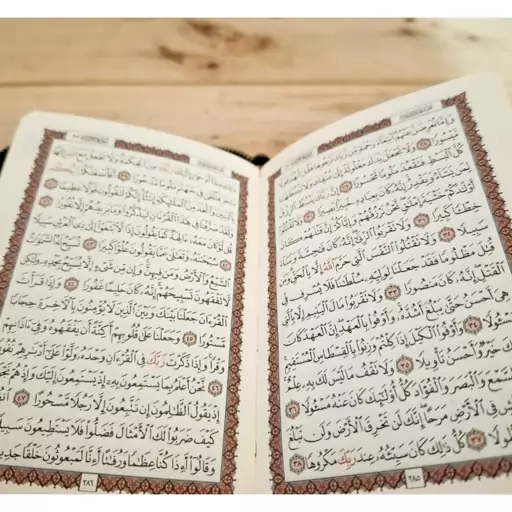 وَإِمَّا تُعْرِضَنَّ عَنْهُمُ ٱبْتِغَآءَ
مَّيْسُورًا ٢٨ وَلَا تَجْعَلْ يَدَكَ مَغْلُولَةً إِلَىٰ عُنُقِكَ وَلَا تَبْسُطْهَا
كُلَّ ٱلْبَسْطِ فَتَقْعُدَ مَلُومًا مَّحْسُورًا ٢٩ إِنَّ رَبَّكَ يَبْسُطُ ٱلرِّزْقَ
لِمَن يَشَآءُ وَيَقْدِرُ إِنَّهُۥ كَانَ بِعِبَادِهِۦ خَبِيرًۢا بَصِيرًا ٣٠ وَلَا تَقْتُلُوٓا۟
أَوْلَٰدَكُمْ خَشْيَةَ إِمْلَٰقٍ نَّحْنُ نَرْزُقُهُمْ وَإِيَّاكُمْ إِنَّ قَتْلَهُمْ كَانَ
خِطْـًٔا كَبِيرًا ٣١ وَلَا تَقْرَبُوا۟ ٱلزِّنَىٰٓ إِنَّهُۥ كَانَ فَٰحِشَةً وَسَآءَ
سَبِيلًا ٣٢ وَلَا تَقْتُلُوا۟ ٱلنَّفْسَ ٱلَّتِى حَرَّمَ ٱللَّهُ إِلَّا بِٱلْحَقِّ وَمَن
قُتِلَ مَظْلُومًا فَقَدْ جَعَلْنَا لِوَلِيِّهِۦ سُلْطَٰنًا فَلَا يُسْرِف فِّى
ٱلْقَتْلِ إِنَّهُۥ كَانَ مَنصُورًا ٣٣ وَلَا تَقْرَبُوا۟ مَالَ ٱلْيَتِيمِ إِلَّا بِٱلَّتِى
هِىَ أَحْسَنُ حَتَّىٰ يَبْلُغَ أَشُدَّهُۥ وَأَوْفُوا۟ بِٱلْعَهْدِ إِنَّ ٱلْعَهْدَ كَانَ
مَسْـُٔولًا ٣٤ وَأَوْفُوا۟ ٱلْكَيْلَ إِذَا كِلْتُمْ وَزِنُوا۟ بِٱلْقِسْطَاسِ ٱلْمُسْتَقِيمِ
خَيْرٌ وَأَحْسَنُ تَأْوِيلًا ٣٥ وَلَا تَقْفُ مَا لَيْسَ لَكَ بِهِۦ عِلْمٌ
ٱلسَّمْعَ وَٱلْبَصَرَ وَٱلْفُؤَادَ كُلُّ أُو۟لَٰٓئِكَ كَانَ عَنْهُ مَسْـُٔولًا ٣٦
فِى ٱلْأَرْضِ مَرَحًا إِنَّكَ لَن تَخْرِقَ ٱلْأَرْضَ وَلَن تَبْلُغَ
طُولًا ٣٧ كُلُّ ذَٰلِكَ كَانَ سَيِّئُهُۥ عِندَ رَبِّكَ مَكْرُوهًا ٣٨
٢٨٥
مِنَ ٱلْحِكْمَةِ وَلَا تَجْعَلْ مَعَ
فِى جَهَنَّمَ مَلُومًا مَّدْحُورًا ٣٩ أَفَأَصْفَىٰكُمْ
إِنَٰثًا إِنَّكُمْ لَتَقُولُونَ قَوْلًا عَظِيمًا ٤٠
وَلَقَدْ صَرَّفْنَا فِى هَٰذَا ٱلْقُرْءَانِ لِيَذَّكَّرُوا۟ وَمَا يَزِيدُهُمْ إِلَّا نُفُورًا ٤١
قُل لَّوْ كَانَ مَعَهُۥٓ ءَالِهَةٌ كَمَا يَقُولُونَ إِذًا لَّٱبْتَغَوْا۟ إِلَىٰ ذِى ٱلْعَرْشِ سَبِيلًا
٤٢ سُبْحَٰنَهُۥ وَتَعَٰلَىٰ عَمَّا يَقُولُونَ عُلُوًّا كَبِيرًا ٤٣ تُسَبِّحُ لَهُ ٱلسَّمَٰوَٰتُ
ٱلسَّبْعُ وَٱلْأَرْضُ وَمَن فِيهِنَّ وَإِن مِّن شَىْءٍ إِلَّا يُسَبِّحُ بِحَمْدِهِۦ
وَلَٰكِن لَّا تَفْقَهُونَ تَسْبِيحَهُمْ إِنَّهُۥ كَانَ حَلِيمًا غَفُورًا ٤٤ وَإِذَا قَرَأْتَ
ٱلْقُرْءَانَ جَعَلْنَا بَيْنَكَ وَبَيْنَ ٱلَّذِينَ لَا يُؤْمِنُونَ بِٱلْءَاخِرَةِ حِجَابًا
مَّسْتُورًا ٤٥ وَجَعَلْنَا عَلَىٰ قُلُوبِهِمْ أَكِنَّةً أَن يَفْقَهُوهُ وَفِىٓ ءَاذَانِهِمْ
وَقْرًا وَإِذَا ذَكَرْتَ رَبَّكَ فِى ٱلْقُرْءَانِ وَحْدَهُۥ وَلَّوْا۟ عَلَىٰٓ أَدْبَٰرِهِمْ نُفُورًا
٤٦ نَّحْنُ أَعْلَمُ بِمَا يَسْتَمِعُونَ بِهِۦٓ إِذْ يَسْتَمِعُونَ إِلَيْكَ وَإِذْ هُمْ نَجْوَىٰٓ
إِذْ يَقُولُ ٱلظَّٰلِمُونَ إِن تَتَّبِعُونَ إِلَّا رَجُلًا مَّسْحُورًا ٤٧
كَيْفَ ضَرَبُوا۟ لَكَ ٱلْأَمْثَالَ فَضَلُّوا۟ فَلَا يَسْتَطِيعُونَ سَبِيلًا
وَقَالُوٓا۟ أَءِذَا كُنَّا عِظَٰمًا وَرُفَٰتًا أَءِنَّا لَمَبْعُوثُونَ خَلْقًا جَدِيدًا
٢٨٦